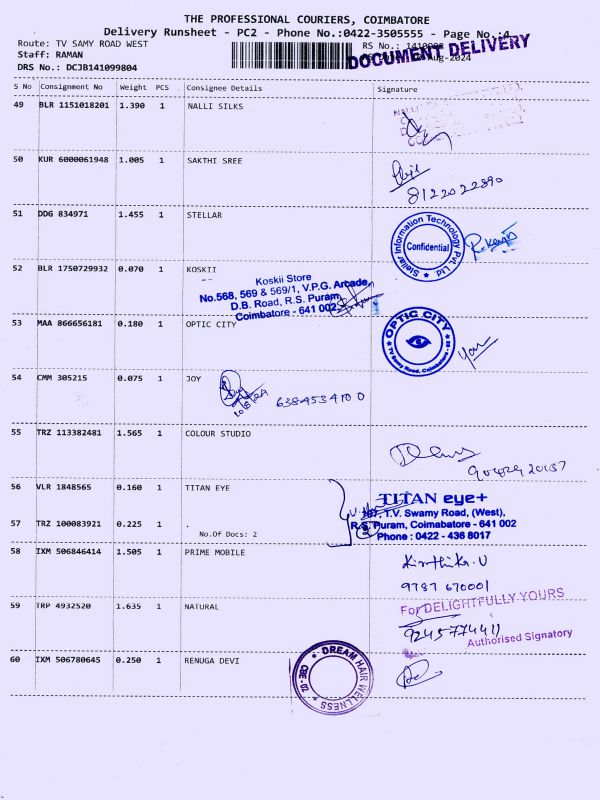 THE PROFESSIONAL COURIERS, COIMBATORE
Delivery Runsheet - PC2 - Phone No.:0422-3505555 - Page No.:4
Route: TV SAMY ROAD WEST
RS No.:
DOCUMENT DELIVERY
Staff: RAMAN
Aug-2024
DRS No.: DCJB141099804
S No Consignment No Weight PCS Consignee Details Signature
49 BLR 1151018201 1.390 1 NALLI SILKS
NALLI
50 KUR 6000061948 1.005 1 SAKTHI SREE
8122022890
51 DDG 834971 1.455 1 STELLAR
Stellar Information Technology Pvt. Ltd
Confidential
52 BLR 1750729932 0.070 1 KOSKII
Koskii Store
No.568, 569 & 569/1, V.P.G. Arcade,
D.B. Road, R.S. Puram,
Coimbatore - 641 002.
53 MAA 866656181 0.180 1 OPTIC CITY
OPTIC CITY
TV Samy Road, Coimbatore
54 CMM 305215 0.075 1 JOY
6384534100
55 TRZ 113382481 1.565 1 COLOUR STUDIO
56 VLR 1848565 0.160 1 TITAN EYE
TITAN eye+
T.V. Swamy Road, (West),
57 TRZ 100083921 0.225 1 .
R.S. Puram, Coimabatore - 641 002
No.Of Docs: 2
Phone : 0422 - 436 8017
58 IXM 506846414 1.505 1 PRIME MOBILE
Kirthika.U
9787 670001
59 TRP 4932520 1.635 1 NATURAL
For DELIGHTFULLY YOURS
9245774411
Authorised Signatory
60 IXM 506780645 0.250 1 RENUGA DEVI
DREAM HAIR WELLNESS
CBE - 02